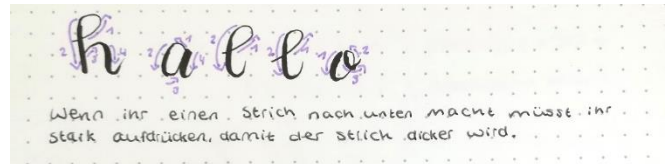 hallo
Wenn ihr einen Strich nach unten macht müsst ihr
stark aufdrücken, damit der strich dicker wird.